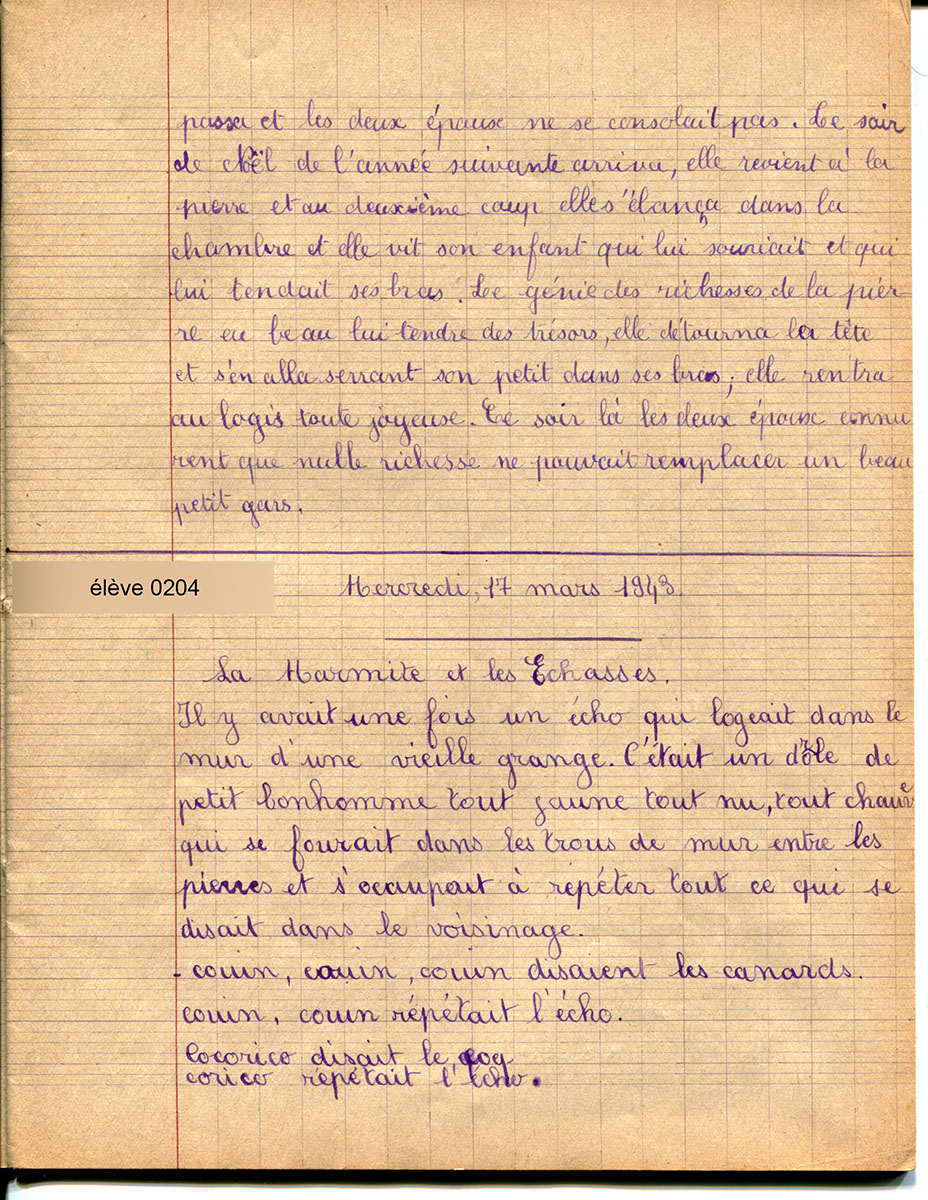 passa et les deux épause ne se consolait pas. Le soir
de Noël de l'année suivante arriva, elle revient à la
pierre et au deuxième coup elle s'élança dans la
chambre et elle vit son enfant qui lui souriait et qui
lui tendait ses bras. Le génie des richesses de la pier-
re eu beau lui tendre des trésors, elle détourna la tête
et s'en alla serrant son petit dans ses bras; elle rentra
au logis toute joyeuse. Ce soir là les deux épouse connu
rent que nulle richesse ne pouvait remplacer un beau
petit gars.
élève 0204
Mercredi, 17 mars 1943.
La Marmite et les Echasses.
Il y avait une fois un écho qui logeait dans le
mur d'une vieille grange. C'était un drôle de
petit bonhomme tout jaune tout nu, tout chauve
qui se fourait dans les trous de mur entre les
pierres et s'occupait à répéter tout ce qui se
disait dans le voisinage.
- couin, couin, couin disaient les canards.
couin, couin répétait l'écho.
Cocorico disait le coq
corico répétait l'écho.